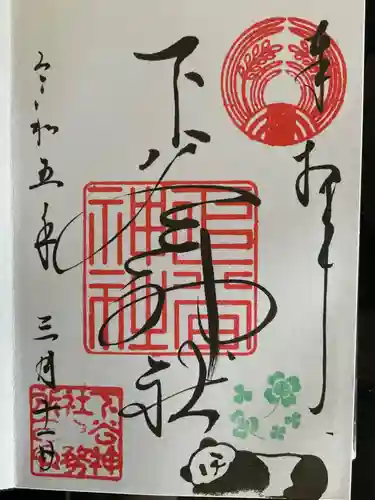 奉拝
下谷神社
下谷神社
令和五年三月十一日
下谷神社社務所印